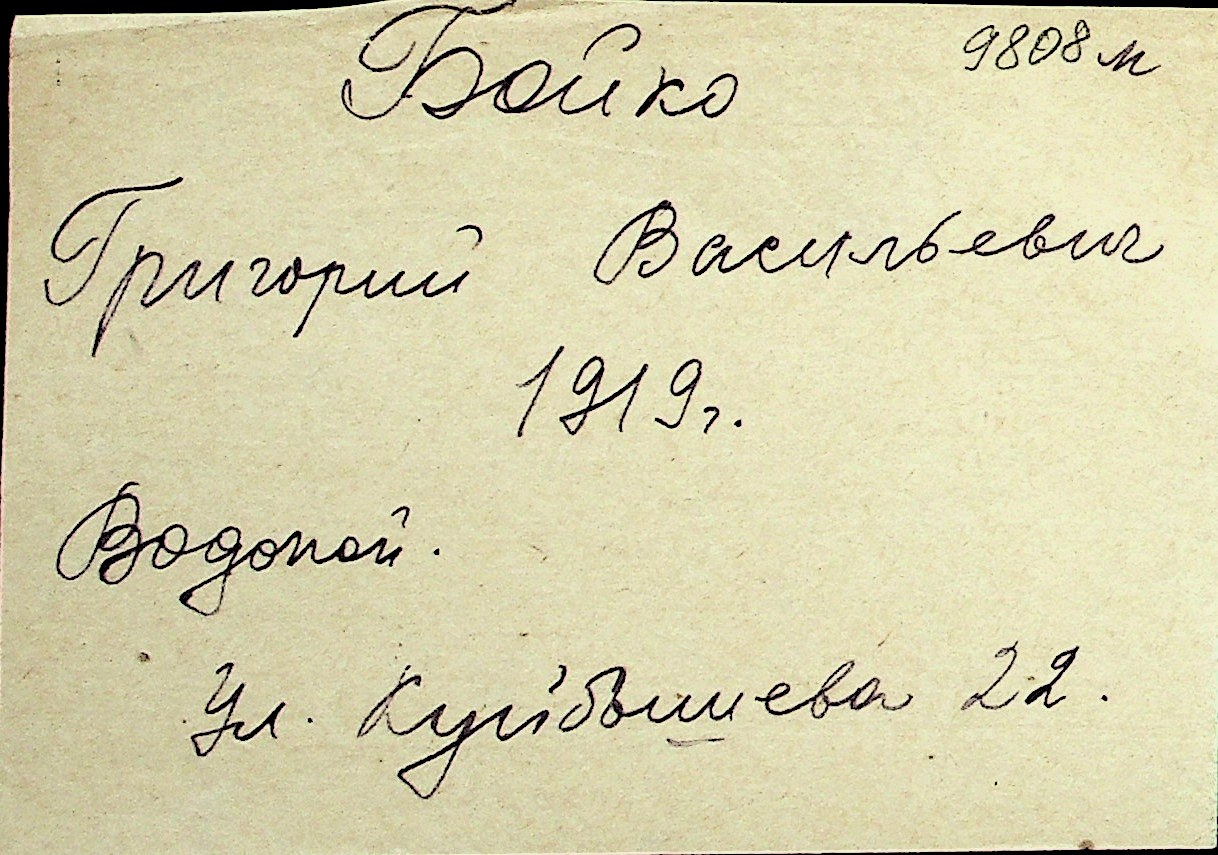 Бойко 9808 м
Григорий Васильевич
1919 г.
Водопой.
Ул. Куйбышева 22.